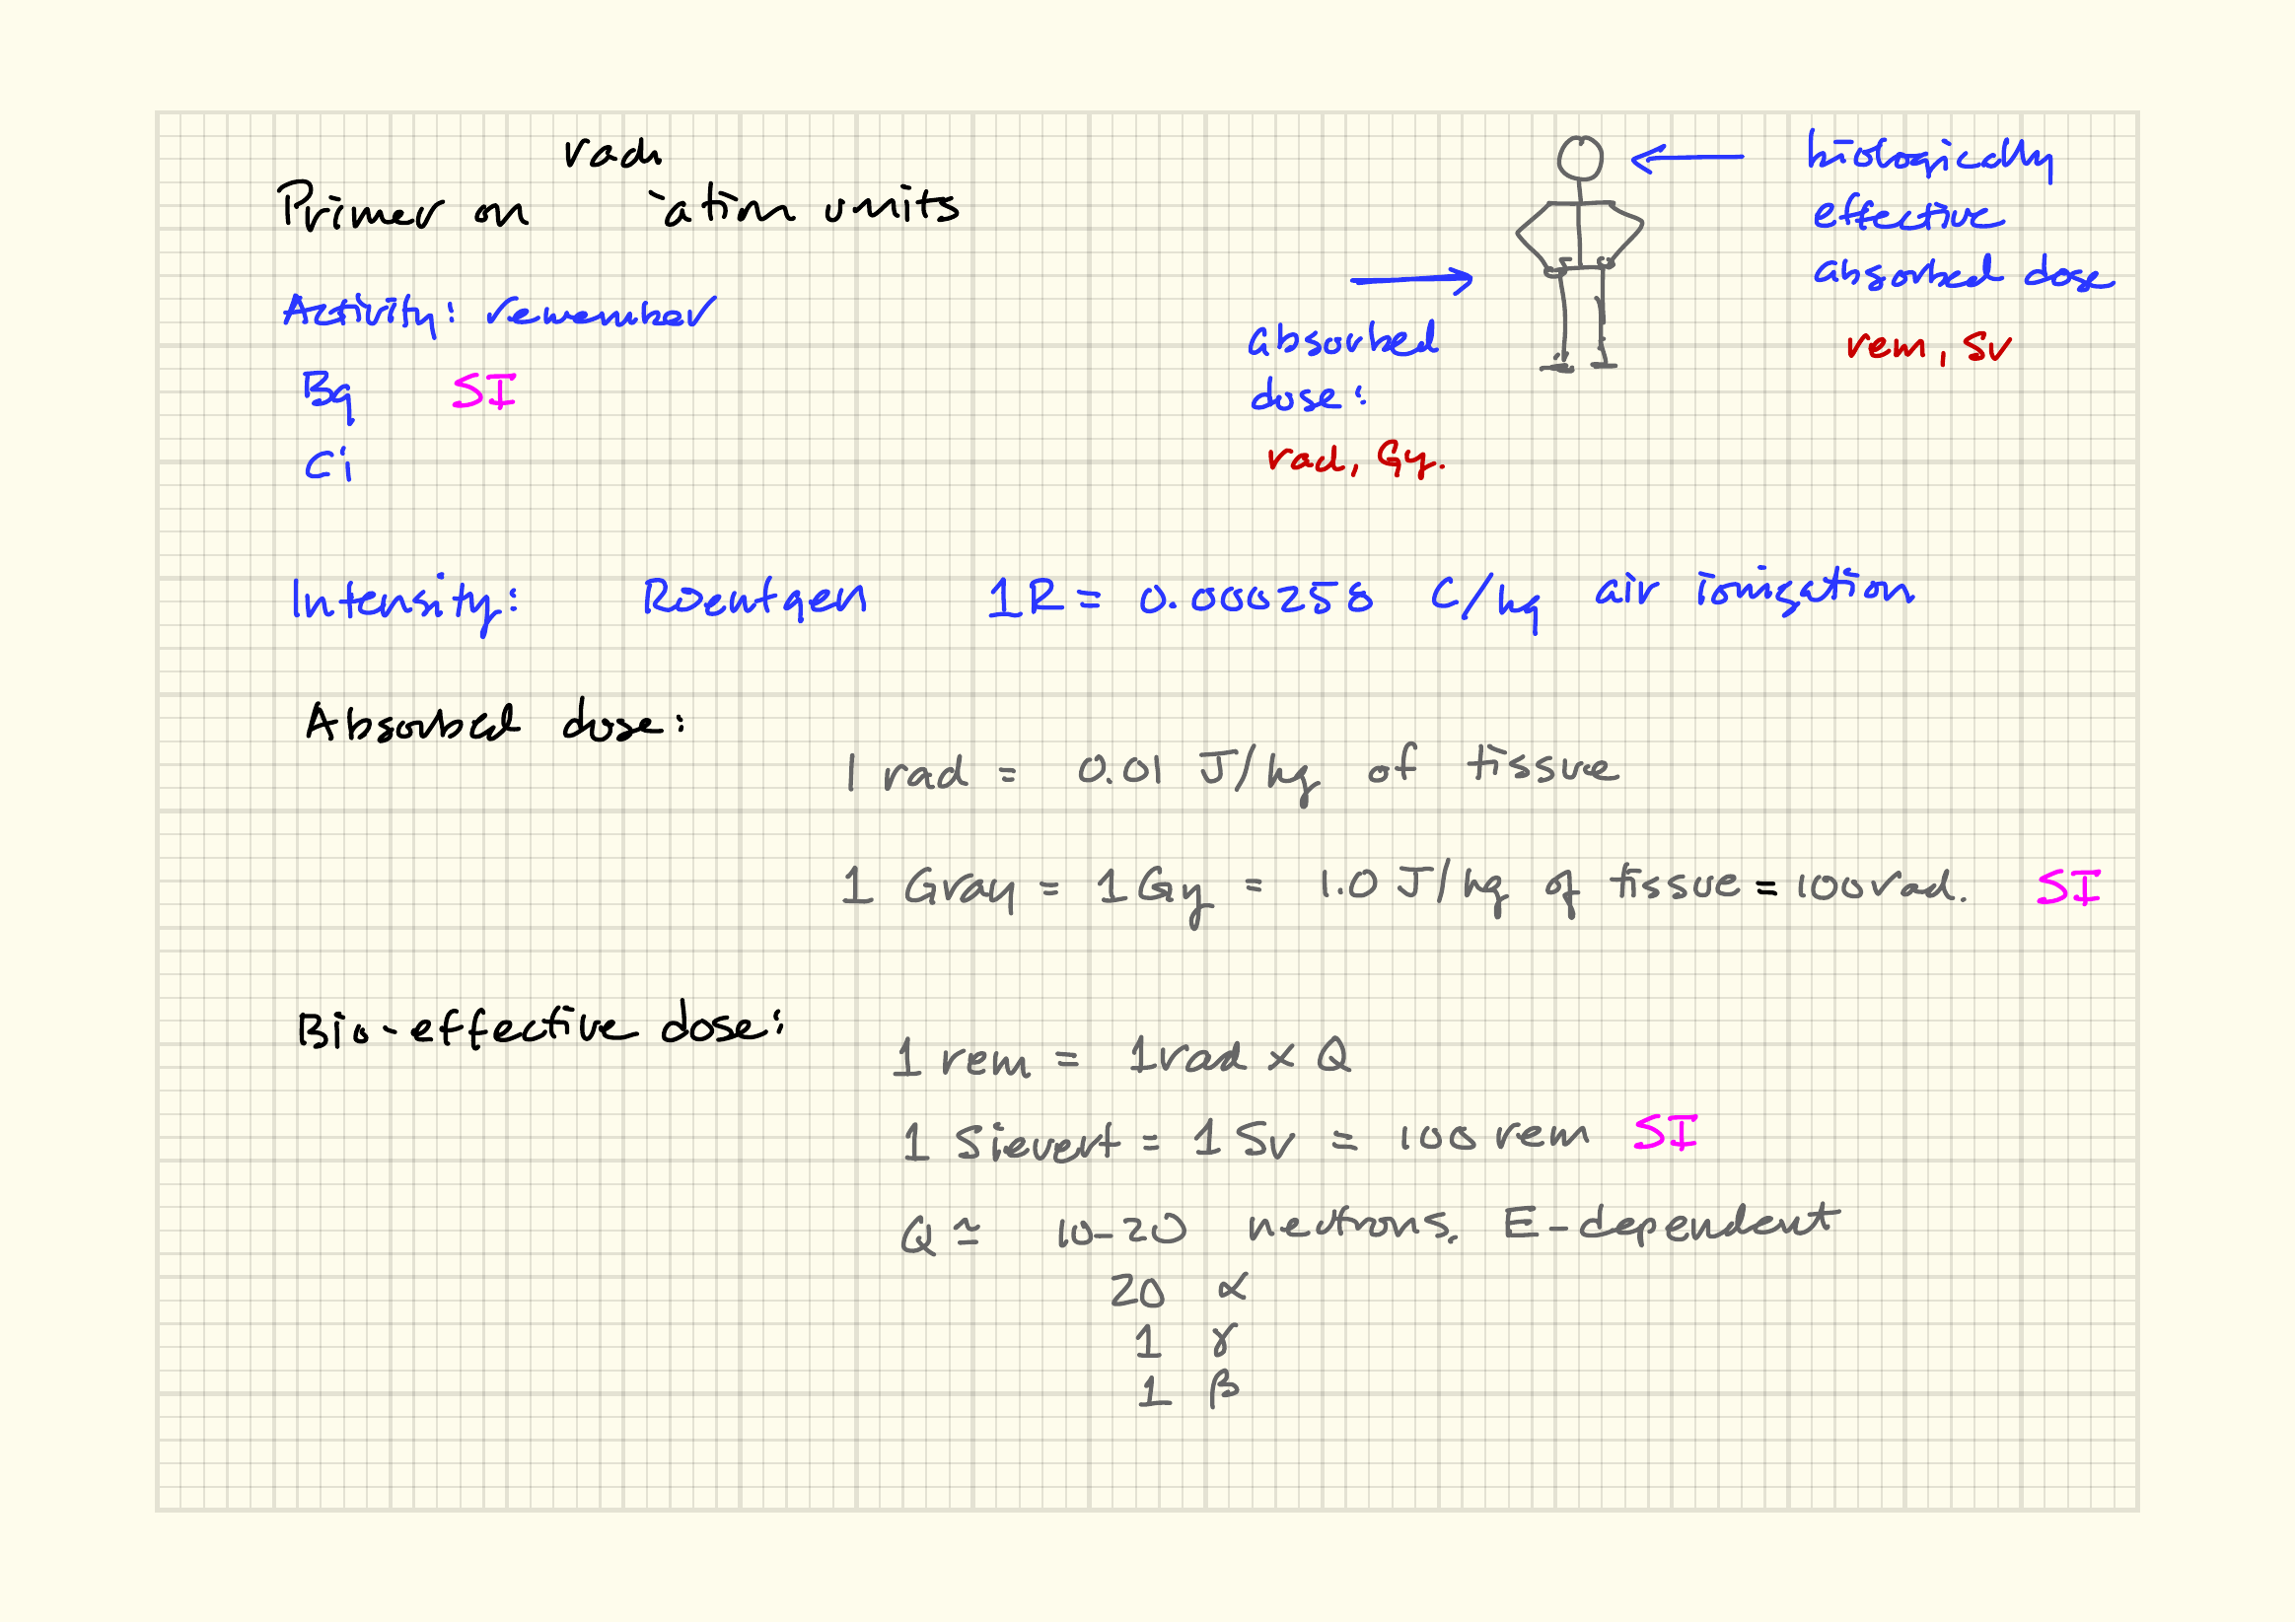 radi
Primer on -ation units
Activity: remember
Bq SI
Ci
biologically
effective
absorbed dose
rem, Sv
absorbed
dose:
rad, Gy.
Intensity: Roentgen 1R = 0.000258 C/kg air ionisation
Absorbed dose:
1 rad = 0.01 J/kg of tissue
1 Gray = 1 Gy = 1.0 J/kg of tissue = 100 rad. SI
Bio-effective dose:
1 rem = 1 rad × Q
1 Sievert = 1 Sv = 100 rem SI
Q ≃ 10-20 neutrons. E-dependent
20 α
1 γ
1 β